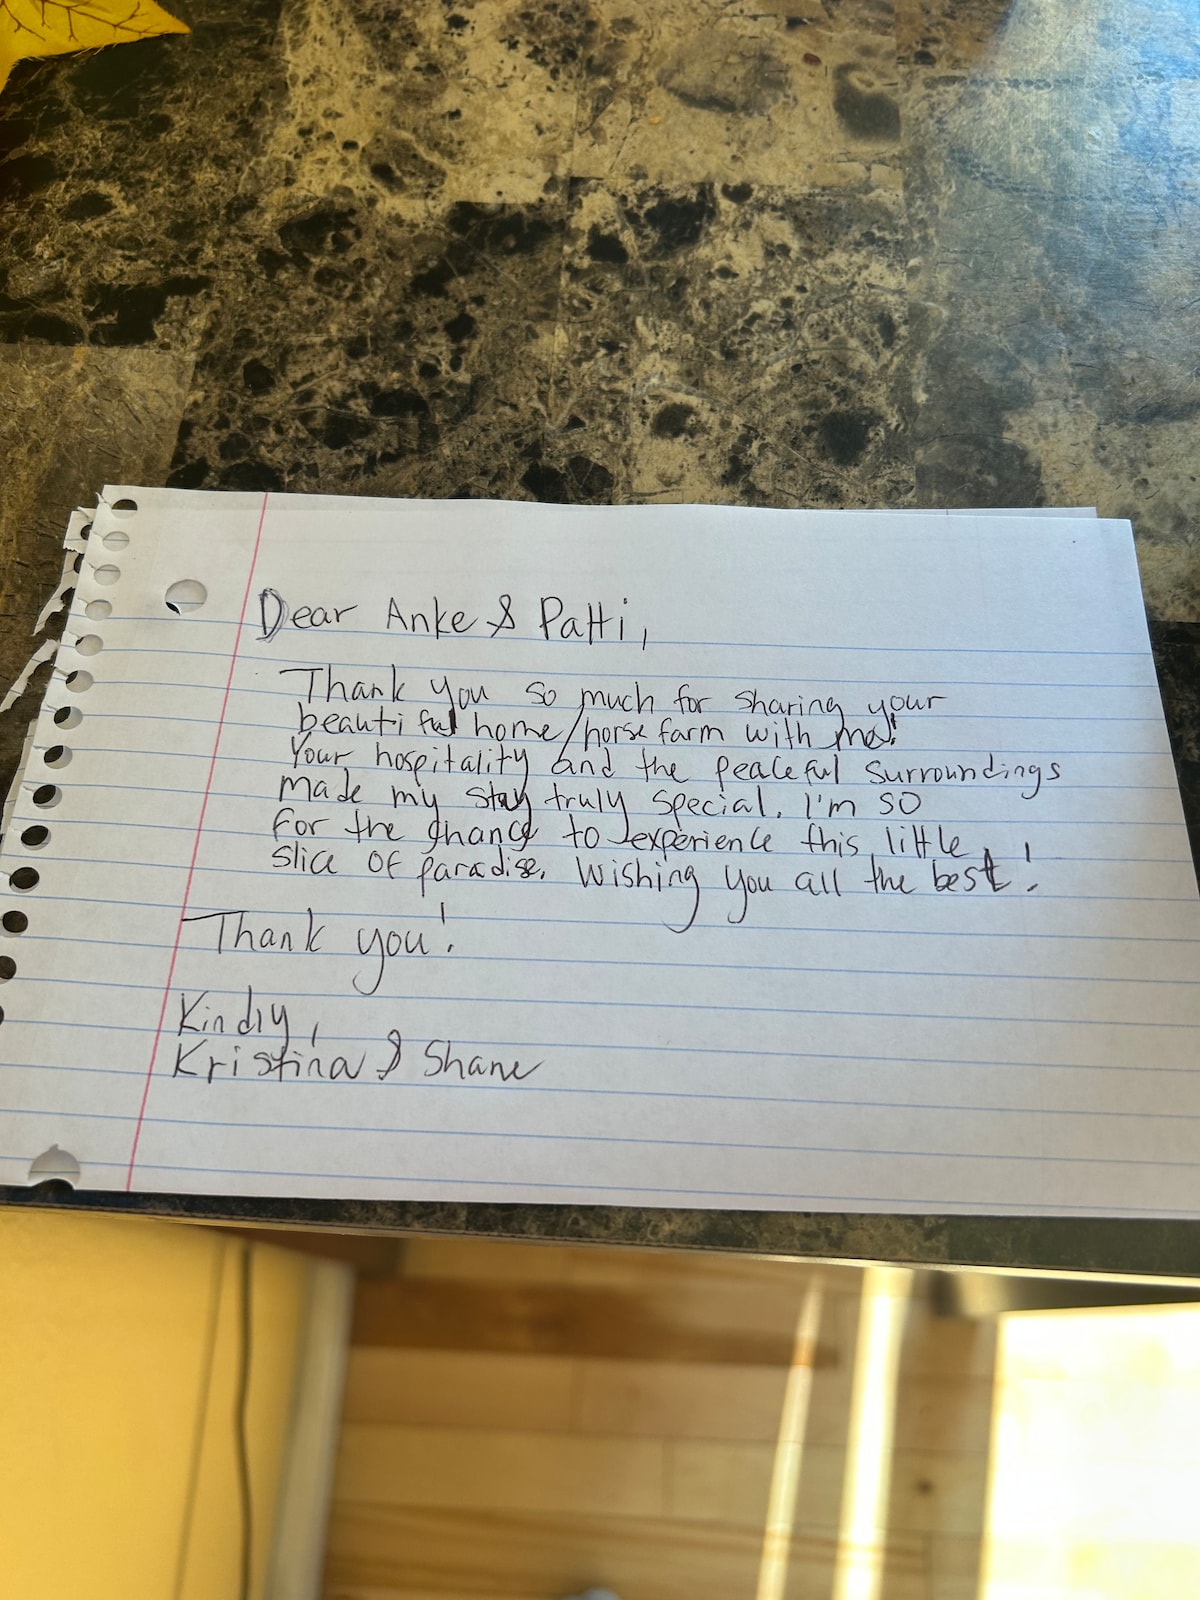 Dear Anke & Patti,
Thank you so much for sharing your
beautiful home/horse farm with me!
Your hospitality and the peaceful surroundings
made my stay truly special. I'm so
for the chance to experience this little
slice of paradise. Wishing you all the best!
Thank you!
Kindly,
Kristina & Shane